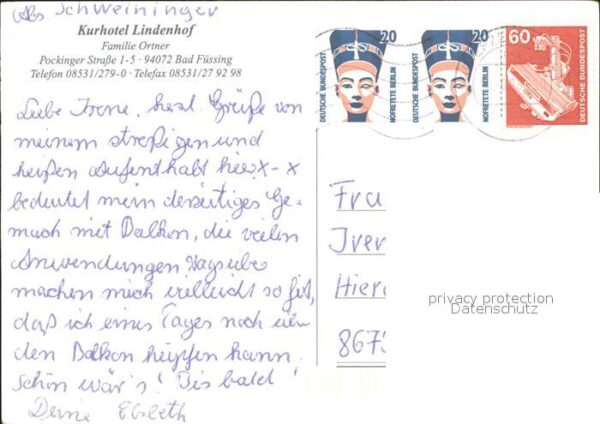 Abs Schweininger
Kurhotel Lindenhof
Familie Ortner
Pockinger Straße 1-5 · 94072 Bad Füssing
Telefon 08531/279-0 · Telefax 08531/27 92 98
20
20
60
DEUTSCHE BUNDESPOST
NOFRETETE BERLIN
DEUTSCHE BUNDESPOST
NOFRETETE BERLIN
DEUTSCHE BUNDESPOST
Liebe Irene, herzl. Grüße von
meinem streßigen und
heißen Aufenthalt hier X-X
bedeutet mein derzeitiges Ge-
mach mit Balkon, die vielen
Anwendungen tagsüber
machen mich vielleicht so fit,
daß ich eines Tages noch über
den Balkon hüpfen kann.
Schön wär's! Bis bald!
Deine Elsbeth
Frau
Iren
Hier
8673
privacy protection
Datenschutz